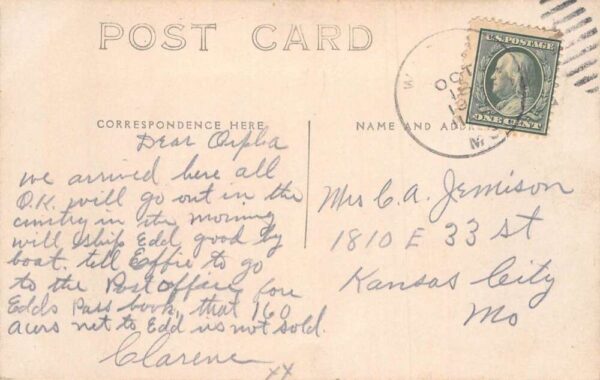 POST CARD
CORRESPONDENCE HERE
NAME AND ADDRESS
U.S. POSTAGE
ONE CENT
OCT
Dear Orpha
we arrived here all
O.K. will go out in the
cuntry in the morning
will ship Edd good by
boat. tell Effie to go
to the Post office fore
Edds Pass book, that 160
acers net to Edd is not sold.
Clarence
xx
Mrs C. A. Jemison
1810 E 33 st
Kansas City
Mo